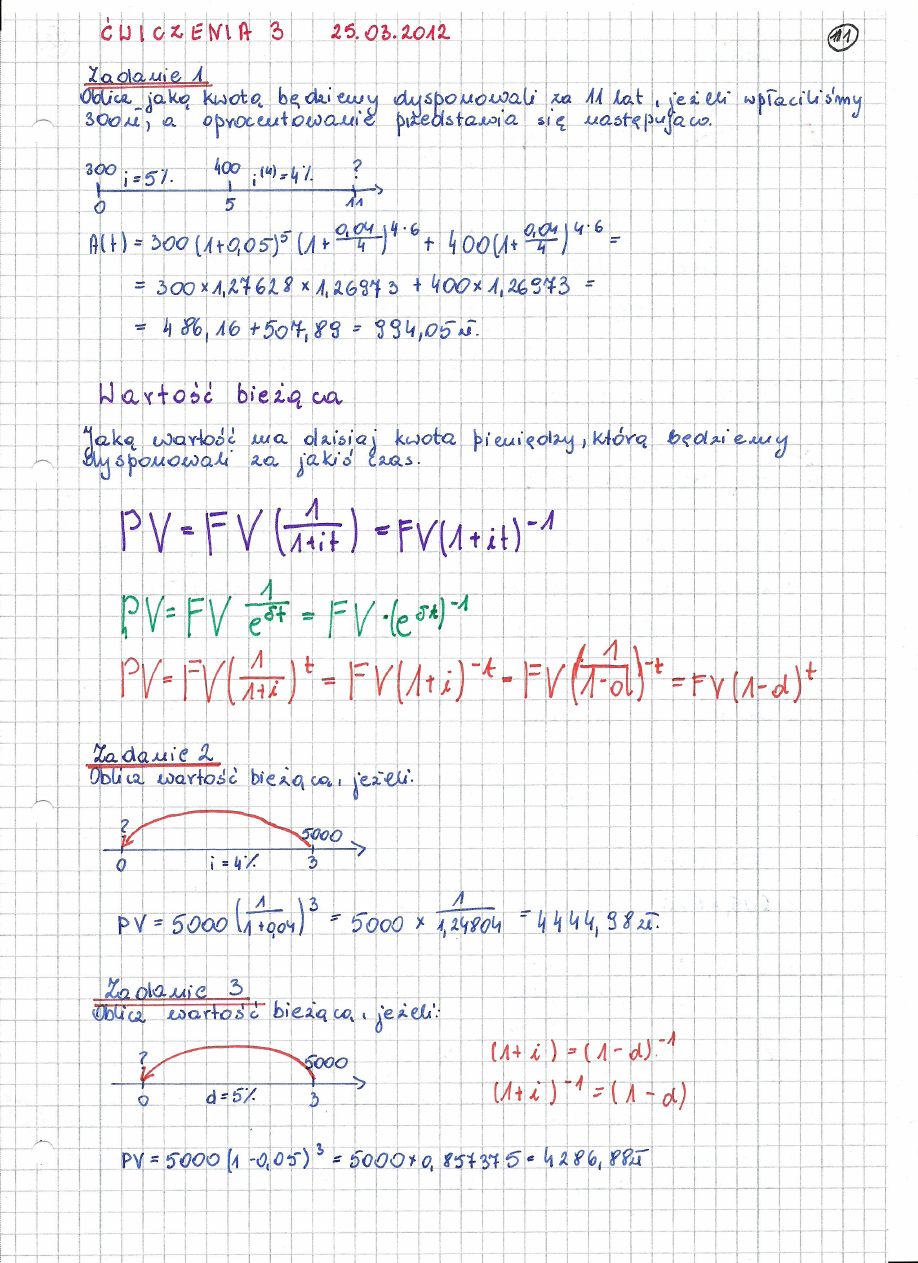 ĆWICZENIA 3 25.03.2012
111
Zadanie 1
Oblicz jaką kwotą będziemy dysponowali za 11 lat, jeżeli wpłaciliśmy
300zł, a oprocentowanie przedstawia się następująco.
300 i=5% 400 i⁽⁴⁾=4% ?
0 5 11
A(t) = 300 (1+0,05)⁵ (1+ 0,04/4)^4·6 + 400(1+ 0,04/4)^4·6 =
= 300×1,27628×1,26973 + 400×1,26973 =
= 486,16+507,89 = 994,05zł.
Wartość bieżąca
Jaką wartość ma dzisiaj kwota pieniędzy, którą będziemy
dysponowali za jakiś czas.
PV = FV (1/(1+it)) = FV(1+it)⁻¹
PV = FV 1/e^δt = FV·(e^δt)⁻¹
PV = FV(1/(1+i))^t = FV(1+i)^-t = FV(1/(1-d))^-t = FV(1-d)^t
Zadanie 2
Oblicz wartość bieżącą, jeżeli:
? 5000
0 i=4% 3
PV = 5000 (1/(1+0,04))³ = 5000 × 1/1,24804 = 4444,98zł.
Zadanie 3
Oblicz wartość bieżącą, jeżeli:
? 5000
0 d=5% 3
(1+i) = (1-d)⁻¹
(1+i)⁻¹ = (1-d)
PV = 5000 (1-0,05)³ = 5000×0,857375 = 4286,88zł